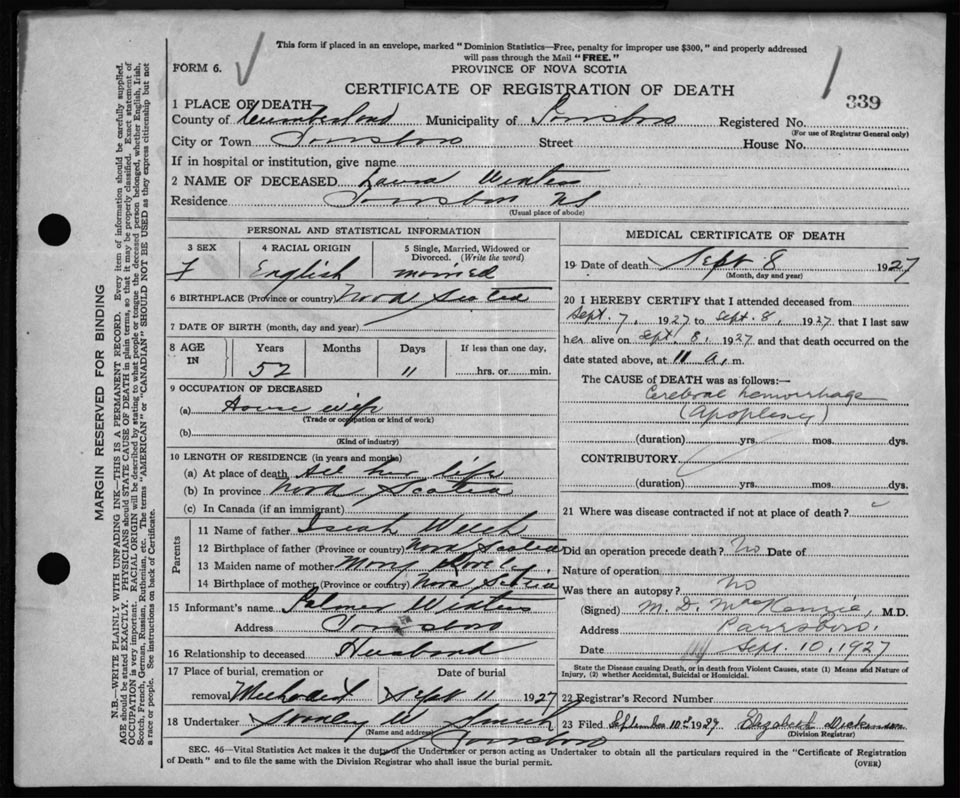 This form if placed in an envelope, marked "Dominion Statistics—Free, penalty for improper use $300," and properly addressed
will pass through the Mail "FREE."
FORM 6.
PROVINCE OF NOVA SCOTIA
CERTIFICATE OF REGISTRATION OF DEATH
339
1 PLACE OF DEATH
County of Cumberland Municipality of Parrsboro Registered No.
(For use of Registrar General only)
City or Town Parrsboro Street House No.
If in hospital or institution, give name
2 NAME OF DECEASED Laura
Residence Parrsboro NS
(Usual place of abode)
PERSONAL AND STATISTICAL INFORMATION
3 SEX
F
4 RACIAL ORIGIN
English
5 Single, Married, Widowed or
Divorced. (Write the word)
married
6 BIRTHPLACE (Province or country) Nova Scotia
7 DATE OF BIRTH (month, day and year)
8 AGE
IN
Years
52
Months
Days
11
If less than one day,
hrs. or min.
9 OCCUPATION OF DECEASED
(a) House wife
(Trade or occupation or kind of work)
(b)
(Kind of industry)
10 LENGTH OF RESIDENCE (in years and months)
(a) At place of death all her life
(b) In province Nova Scotia
(c) In Canada (if an immigrant)
Parents
11 Name of father Iseah Welch
12 Birthplace of father (Province or country) Nova Scotia
13 Maiden name of mother Mary
14 Birthplace of mother (Province or country) Nova Scotia
15 Informant's name Palmer
Address Parrsboro
16 Relationship to deceased Husband
17 Place of burial, cremation or
removal Methodist
Date of burial
Sept 11 1927
18 Undertaker Stanley W Smith
(Name and address) Parrsboro
MEDICAL CERTIFICATE OF DEATH
19 Date of death Sept 8 1927
(Month, day and year)
20 I HEREBY CERTIFY that I attended deceased from
Sept. 7, 1927 to Sept. 8, 1927 that I last saw
her alive on Sept. 8, 1927 and that death occurred on the
date stated above, at 11 a. m.
The CAUSE OF DEATH was as follows:—
Cerebral hemorrhage
(Apoplexy)
(duration) yrs. mos. dys.
CONTRIBUTORY
(duration) yrs. mos. dys.
21 Where was disease contracted if not at place of death?
Did an operation precede death? No Date of
Nature of operation
Was there an autopsy? No
(Signed) M. D. MacKenzie, M.D.
Address Parrsboro.
Date Sept. 10, 1927
State the Disease causing Death, or in death from Violent Causes, state (1) Means and Nature of
Injury, (2) whether Accidental, Suicidal or Homicidal.
22 Registrar's Record Number
23 Filed September 10th 1927 Elizabeth Dickinson
(Division Registrar)
SEC. 46—Vital Statistics Act makes it the duty of the Undertaker or person acting as Undertaker to obtain all the particulars required in the "Certificate of Registration
of Death" and to file the same with the Division Registrar who shall issue the burial permit.
(OVER)
MARGIN RESERVED FOR BINDING
N.B.—WRITE PLAINLY WITH UNFADING INK—THIS IS A PERMANENT RECORD. Every item of information should be carefully supplied.
AGE should be stated EXACTLY. PHYSICIANS should STATE CAUSE OF DEATH in plain terms, so that it may be properly classified. Exact statement of
OCCUPATION is very important. RACIAL ORIGIN will be described by stating to what people or tongue the deceased person belonged, whether English, Irish,
Scotch, French, German, Russian, Ruthenian, etc. The terms "AMERICAN" or "CANADIAN" SHOULD NOT BE USED as they express citizenship but not
a race or people. See instructions on back of Certificate.